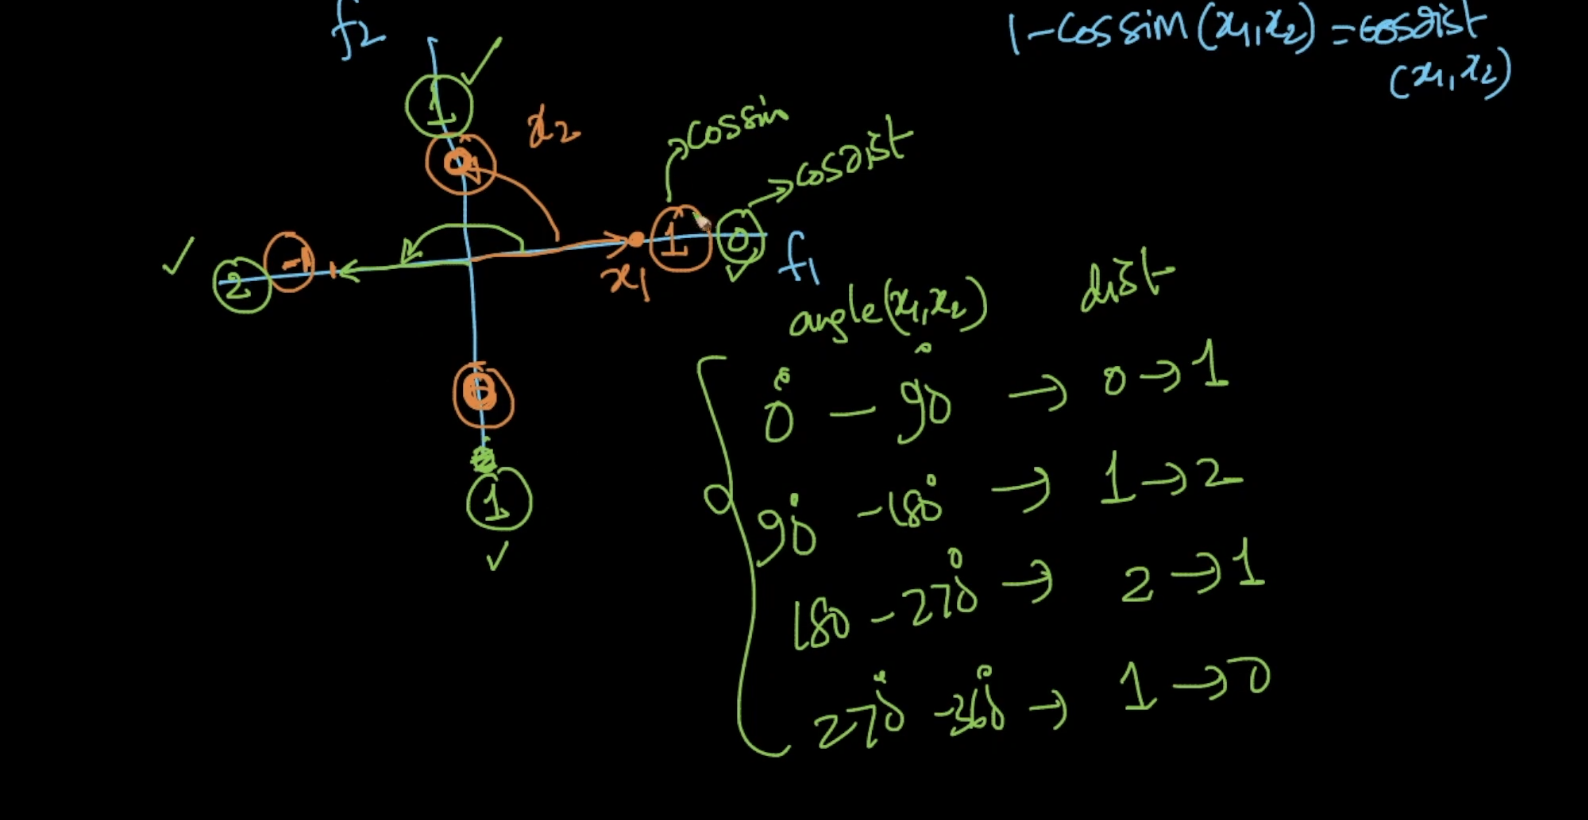 f2
1-cossim(x1,x2)=cosdist
(x1,x2)
1
x2
cossim
0
cosdist
1
0
f1
-1
2
x1
angle(x1,x2) dist
0° - 90° → 0→1
0
90° -180° → 1→2
1
180 - 270° → 2→1
270° -360° → 1→0